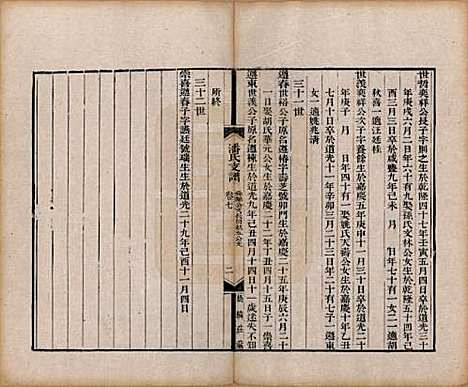 世哲奕祥公長子字則之生於乾隆四十七年壬寅五月四日卒於道光三十
年庚戌六月二日年六十九娶孫氏文林公女生於乾隆五十四年己
酉三月三日卒於咸豐九年己未 月 日年七十有一女二適胡
秋喜一適汪廷桂
世漢奕祥公次子字養餘生於嘉慶五年庚申十一月三日卒於道光二十
年庚子 月 日年四十有一娶姚氏天壽公女生於嘉慶十一年
七月十日卒於道光十一年辛卯三月二日年二十有七子一遇東
女一適姚兆清
三十一世
遇春世裕公子原名遇椿字壽芝號卯門生於嘉慶二十五年庚辰六月二十
一日娶胡氏華元公女生於嘉慶二十二年丁丑四月十五日子一崇喜
遇東世漢公子原名遇棟生於道光九年己丑四月十四日二十一歲迷失不知
所終
三十二世
崇喜遇春子字謠廷號瑞生生於道光二十九年己酉十一月四日
潘氏支譜
卷七
二